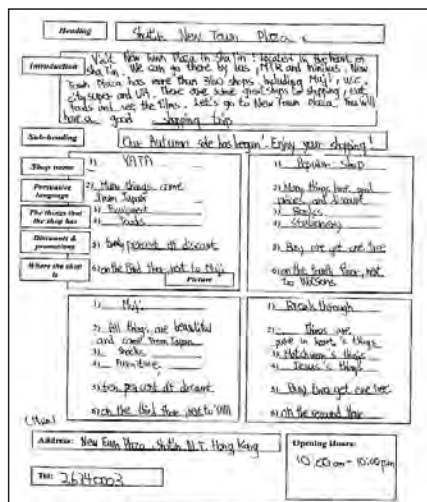 Heading
Shatin New Town Plaza
Introduction
Visit New Town Plaza in Sha Tin! Located in the heart of
Sha Tin. We can go there by bus, MTR and minibus. New
Town Plaza has more than 360 shops. Including Muji,
city'super and UA. There are some great shops for shopping, eat
foods and see the films. Let's go to New Town plaza. You will
have a good shopping trip
Sub-heading
Our Autumn sale has begun! Enjoy your shopping!
Shop name
Persuasive
language
The things that
the shop has
Discounts &
promotions
Where the shop
is
1) YATA
2) Many things come
from Japan
3) Equipment
4) Foods
5) percent off discount
6) on the third floor, next to Muji
Picture
1) Popular Shop
2) Many things have good
prices and discount
3) Books
4) Stationery
5) Buy one get one free
6) on the floor, next
to Watsons
1) Muji
2) All things are beautiful
and come from Japan
3) Snacks
4) Furniture
5) ten percent off discount
6) on the third floor, next to YATA
1) Break through
2) Things are
pure in heart's things
3)
4) Jesus's things
5) Buy two get one free
6) on the second floor
Address: New Town Plaza, Shatin N.T. Hong Kong
Tel: 26340003
Opening Hours:
10:00am - 10:00pm